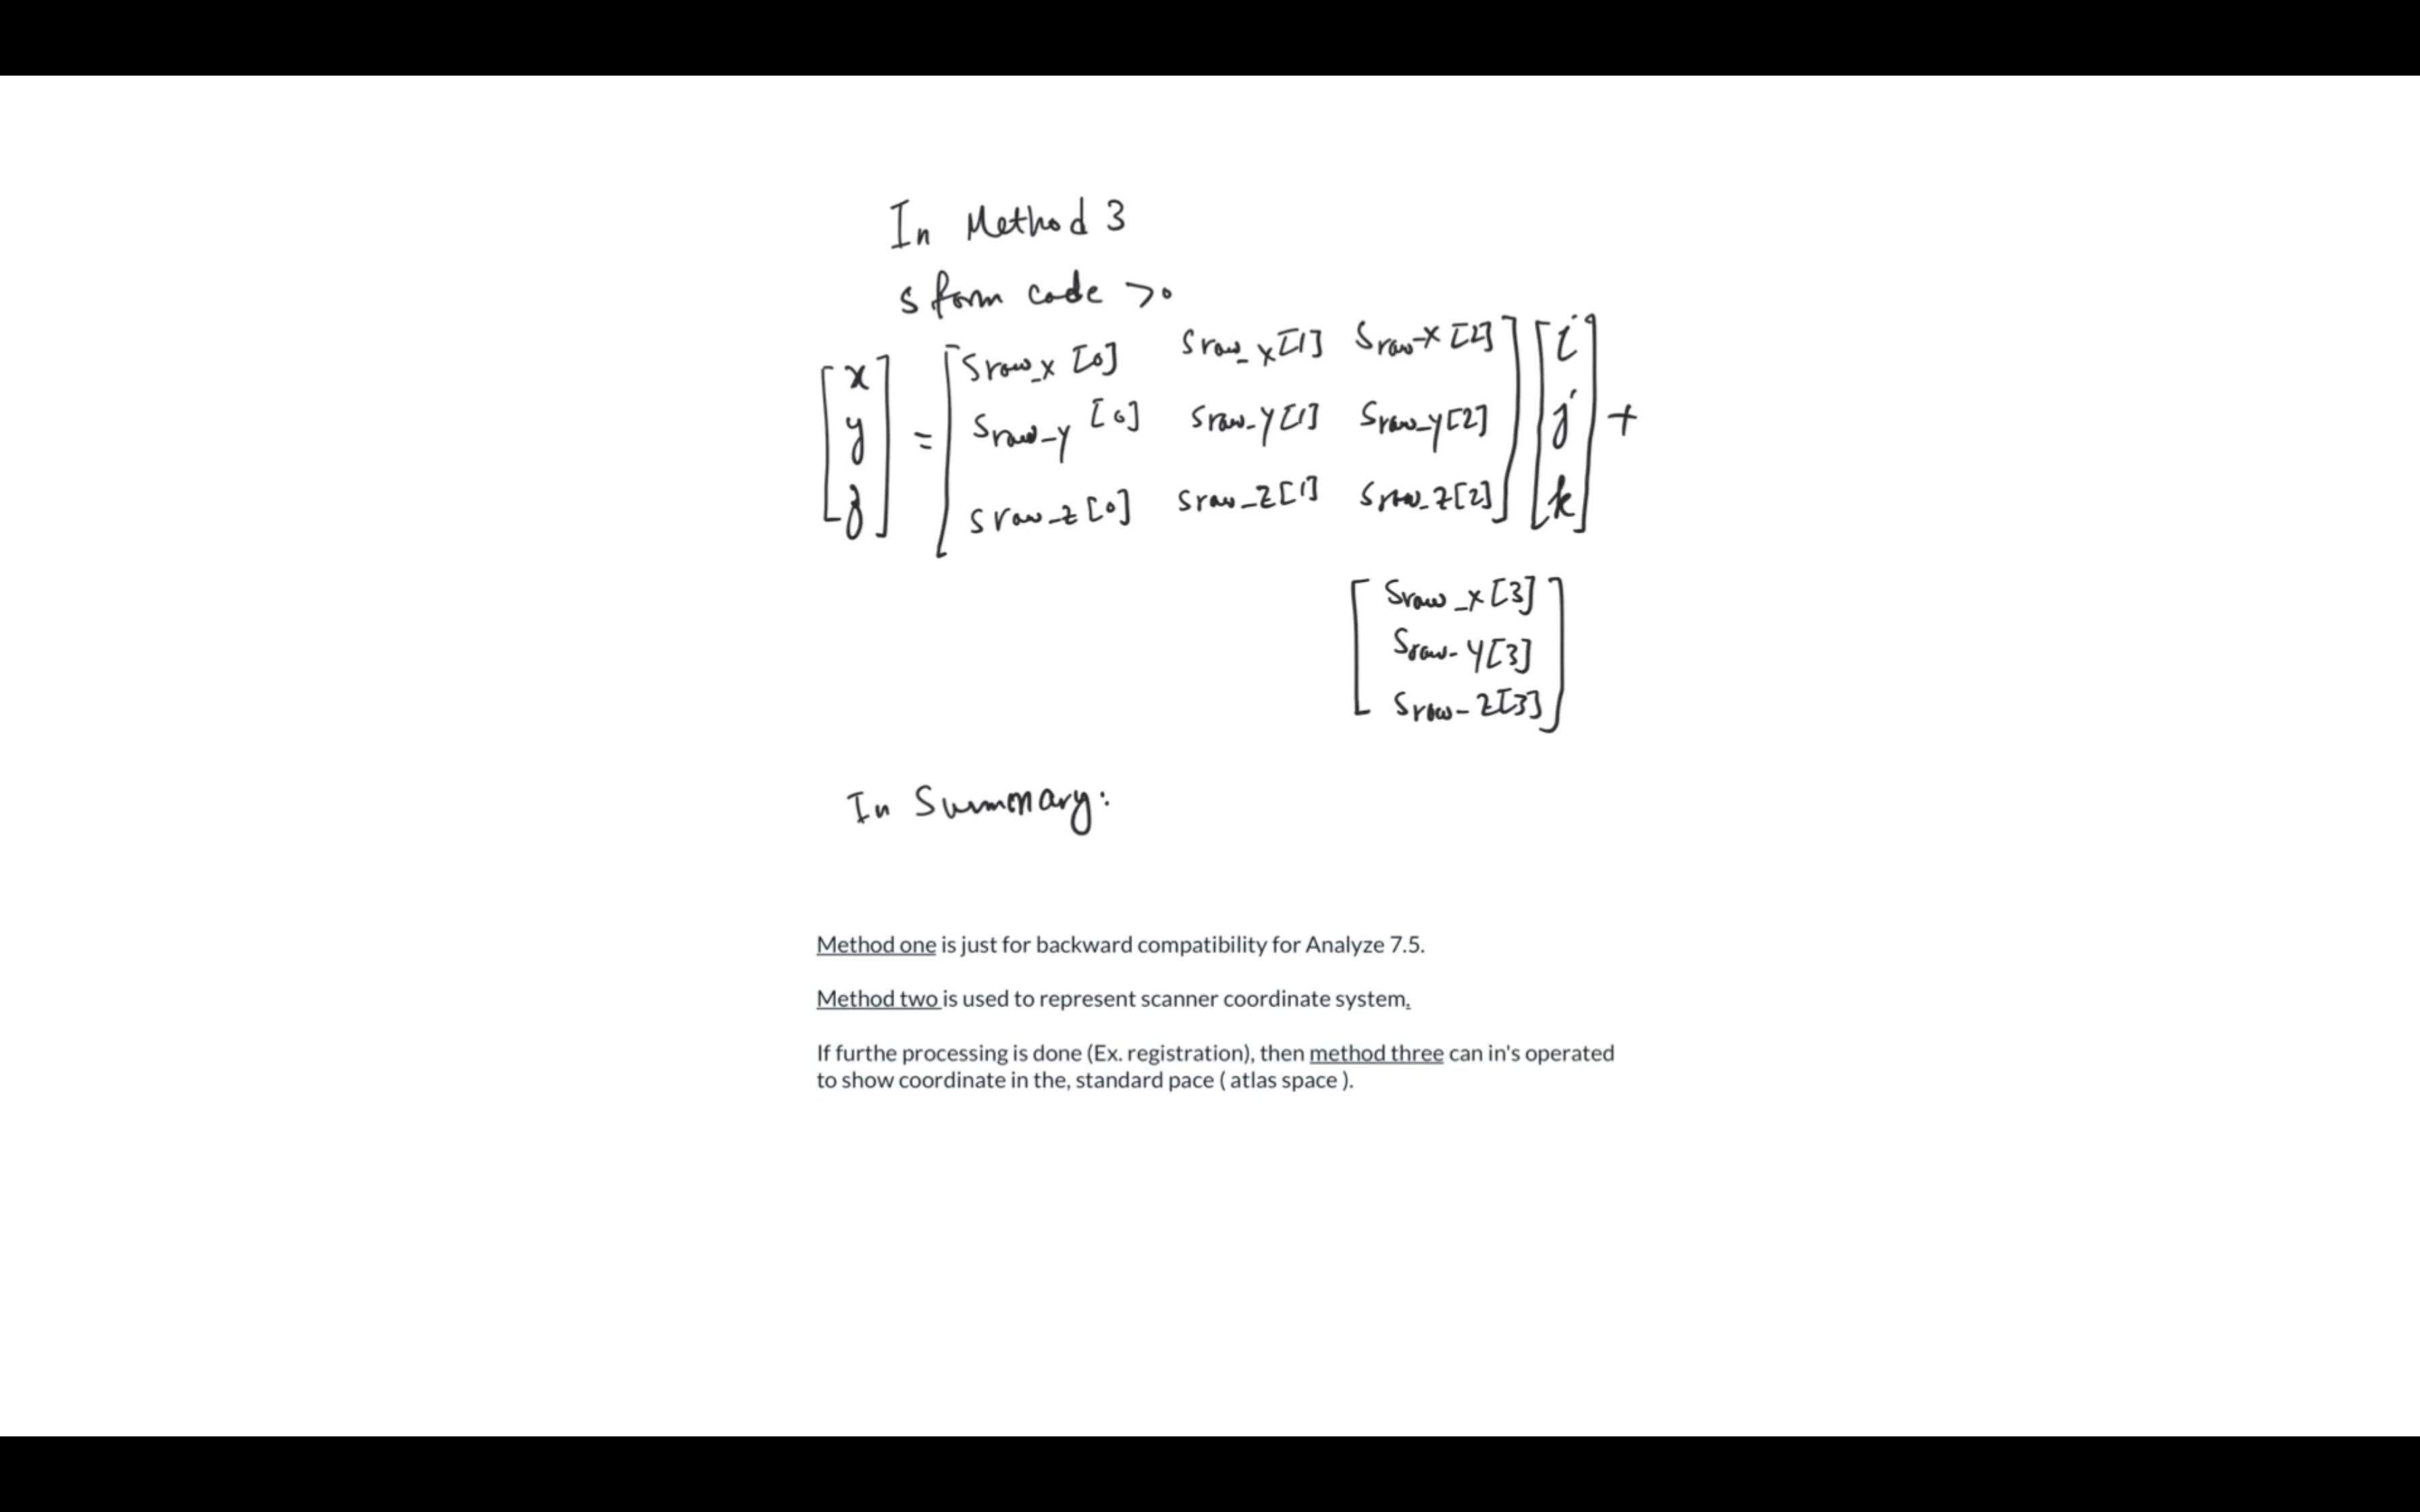 In Method 3
s form code >0
[x y z] = [Srow_x [0] Srow_x[1] Srow-x [2]] [i j k] +
Srow-y [0] Srow-y[1] Srow-y[2]
Srow-z[0] Srow-z[1] Srow-z[2]
[Srow_x[3]
Srow-y[3]
Srow-z[3]]
In Summary:
Method one is just for backward compatibility for Analyze 7.5.
Method two is used to represent scanner coordinate system.
If furthe processing is done (Ex. registration), then method three can in's operated
to show coordinate in the, standard pace ( atlas space ).